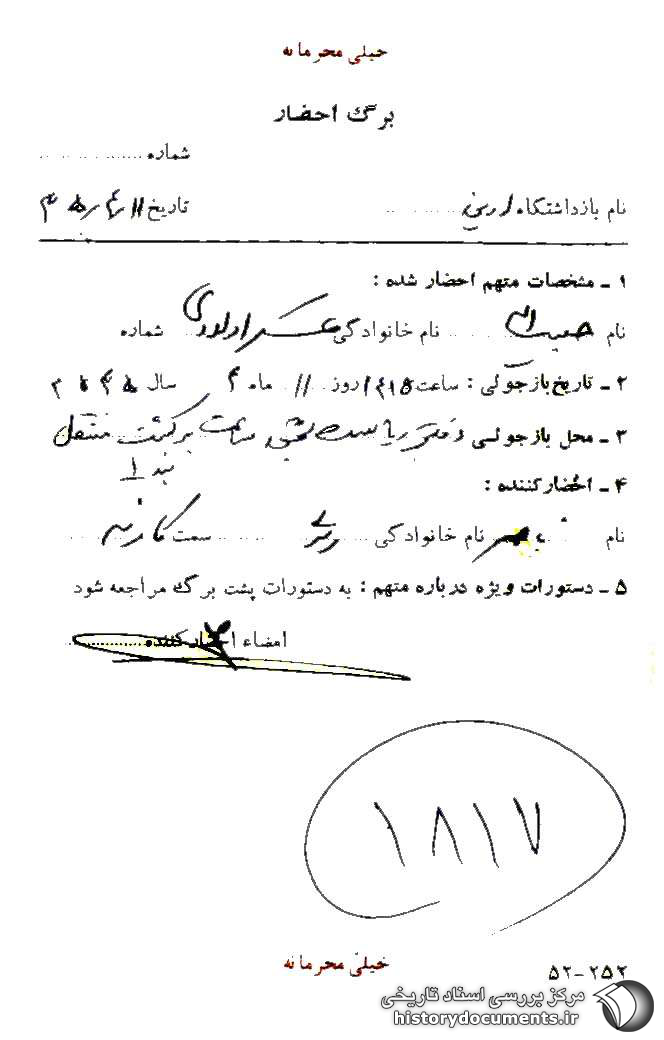 خیلی محرمانه
برگ احضار
شماره
نام بازداشتگاه اوین تاریخ ۱۱
۱ ـ مشخصات متهم احضار شده :
نام حبیب‌اله نام خانوادگی عسکراولادی شماره
۲ ـ تاریخ بازجوئی : ساعت روز ۱۱ ماه ۴ سال
۳ ـ محل بازجوئی دفتر ریاست برگشت منتقل
بند ۱
۴ ـ احضارکننده :
نام نام خانوادگی سمت
۵ ـ دستورات ویژه درباره متهم : به دستورات پشت برگ مراجعه شود
امضاء احضارکننده
۱۸۱۷
خیلی محرمانه
۵۲-۲۵۲
مرکز بررسی اسناد تاریخی
historydocuments.ir